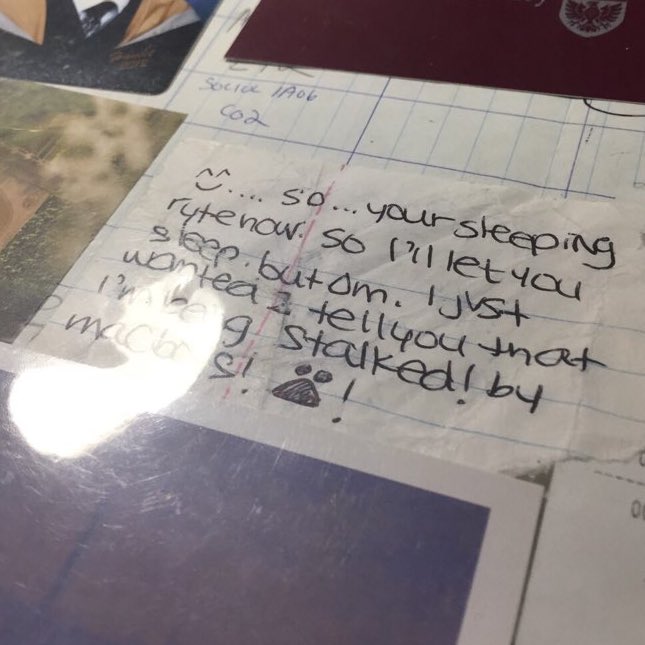 Social 1A06
CO2
.... so... your sleeping
ryte now. so I'll let you
sleep. but Om. I just
wanted 2 tell you that
stalked! by
!